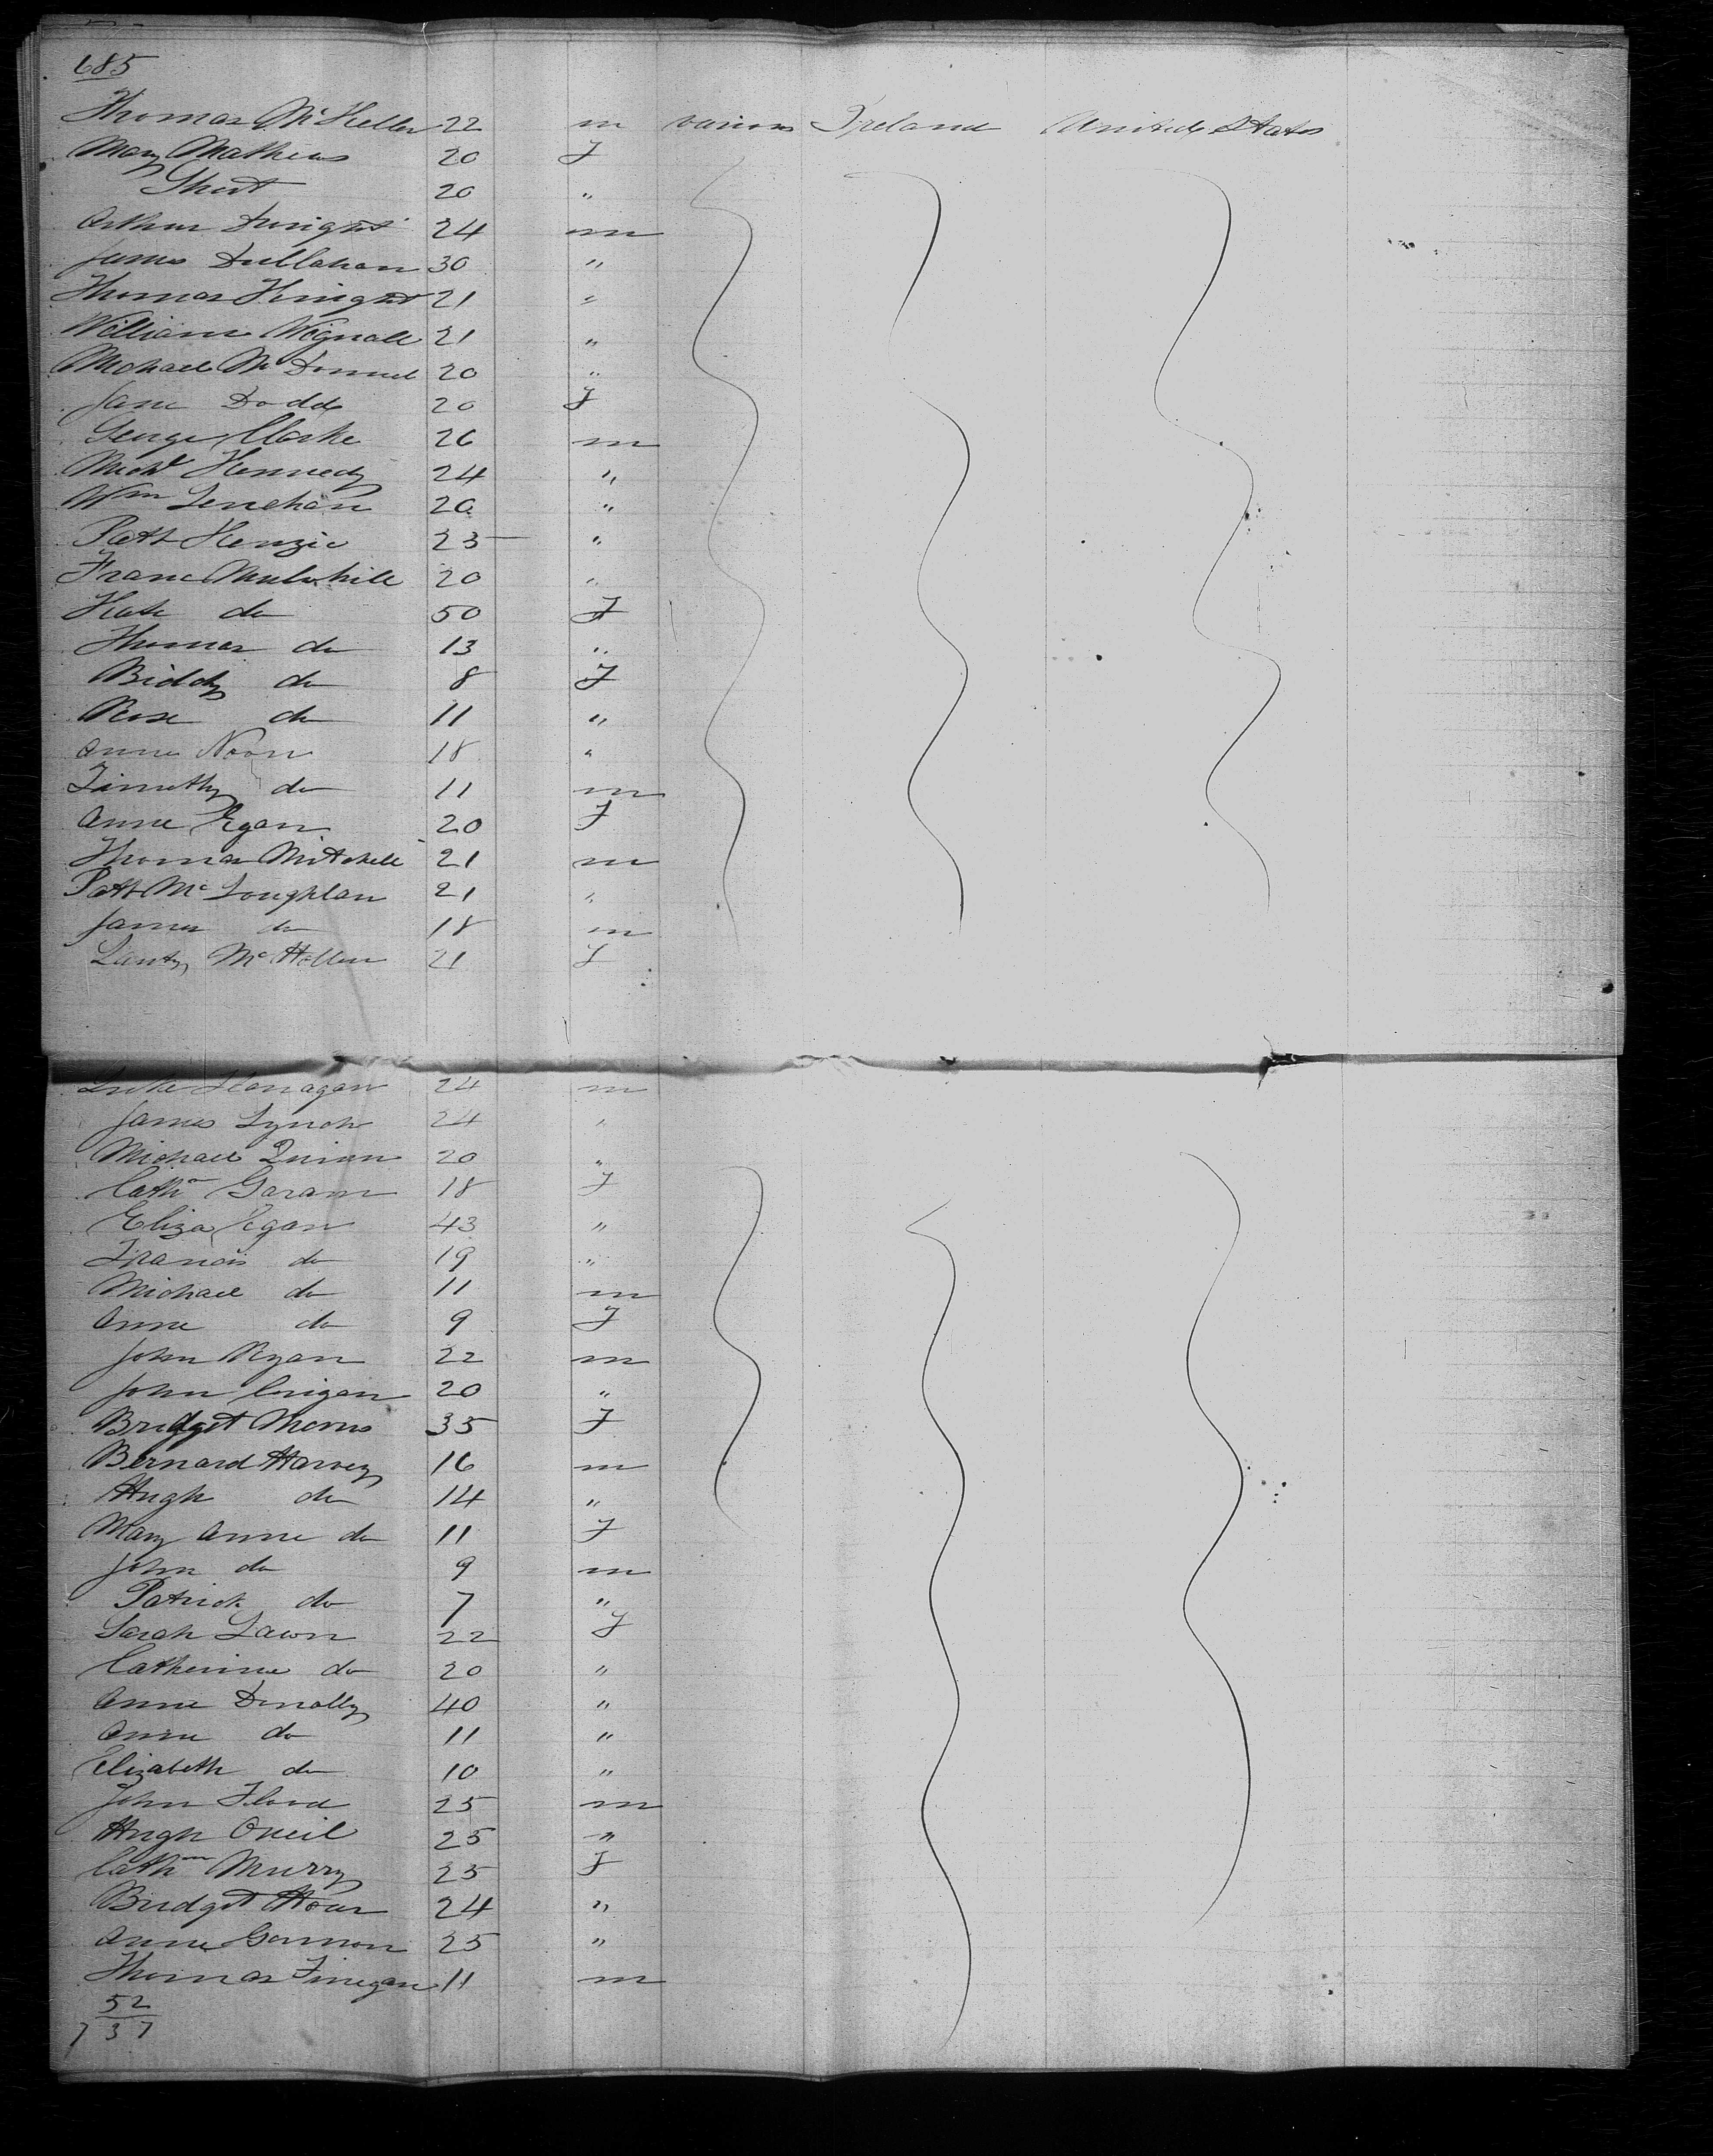 685
Thomas McKeller 22 m various Ireland United States
Mary Mathews 20 F
20 "
Arthur 24 m
James Dullahan 30 "
Thomas 21 "
William Wignall 21 "
Michael McDonnel 20 "
Jane Dodd 20 F
George Clarke 26 m
Michl Kennedy 24 "
Wm Lenehan 20 "
Patt Kenzie 23 "
Franc Mulvihill 20 "
Kate do 50 F
Thomas do 13 "
Biddy do 8 F
Rose do 11 "
Anne Noon 18 "
Timothy do 11 m
Anne Egan 20 F
Thomas Mitchell 21 m
Patt McLoughlan 21 "
James do 18 m
Lanty McHollen 21 F
Luke Flanagan 24 m
James Lynch 24 "
Michael Quinn 20 "
Cathn 18 F
Eliza Egan 43 "
Francis do 19 "
Michael do 11 m
Anne do 9 F
John Ryan 22 m
John Corigan 20 "
Bridget Morris 35 F
Bernard Harvey 16 m
Hugh do 14 "
Mary Anne do 11 F
John do 9 m
Patrick do 7 "
Sarah Lawn 22 F
Catherine do 20 "
Anne Donolly 40 "
Anne do 11 "
Elizabeth do 10 "
John Flood 25 m
Hugh Oneil 25 "
Cathn Murry 25 F
Bridget 24 "
Anne Gannon 25 "
Thomas Finegan 11 m
52
737